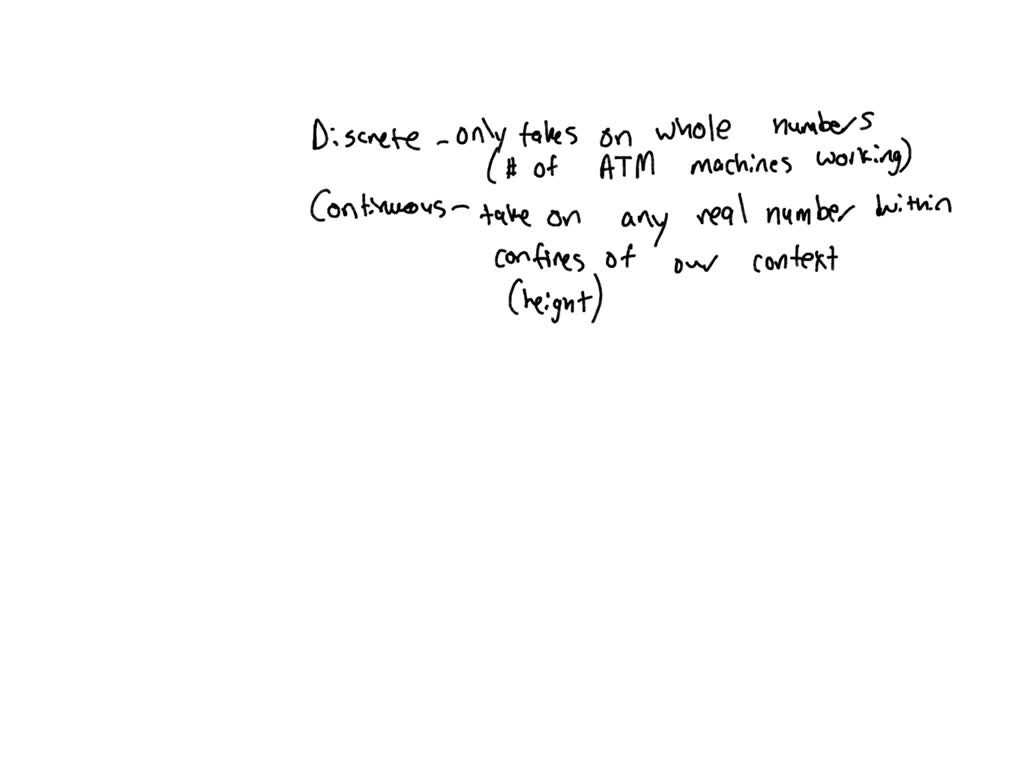 Discrete - only takes on whole numbers
(# of ATM machines working)
Continuous - take on any real number within
confines of our context
(height)